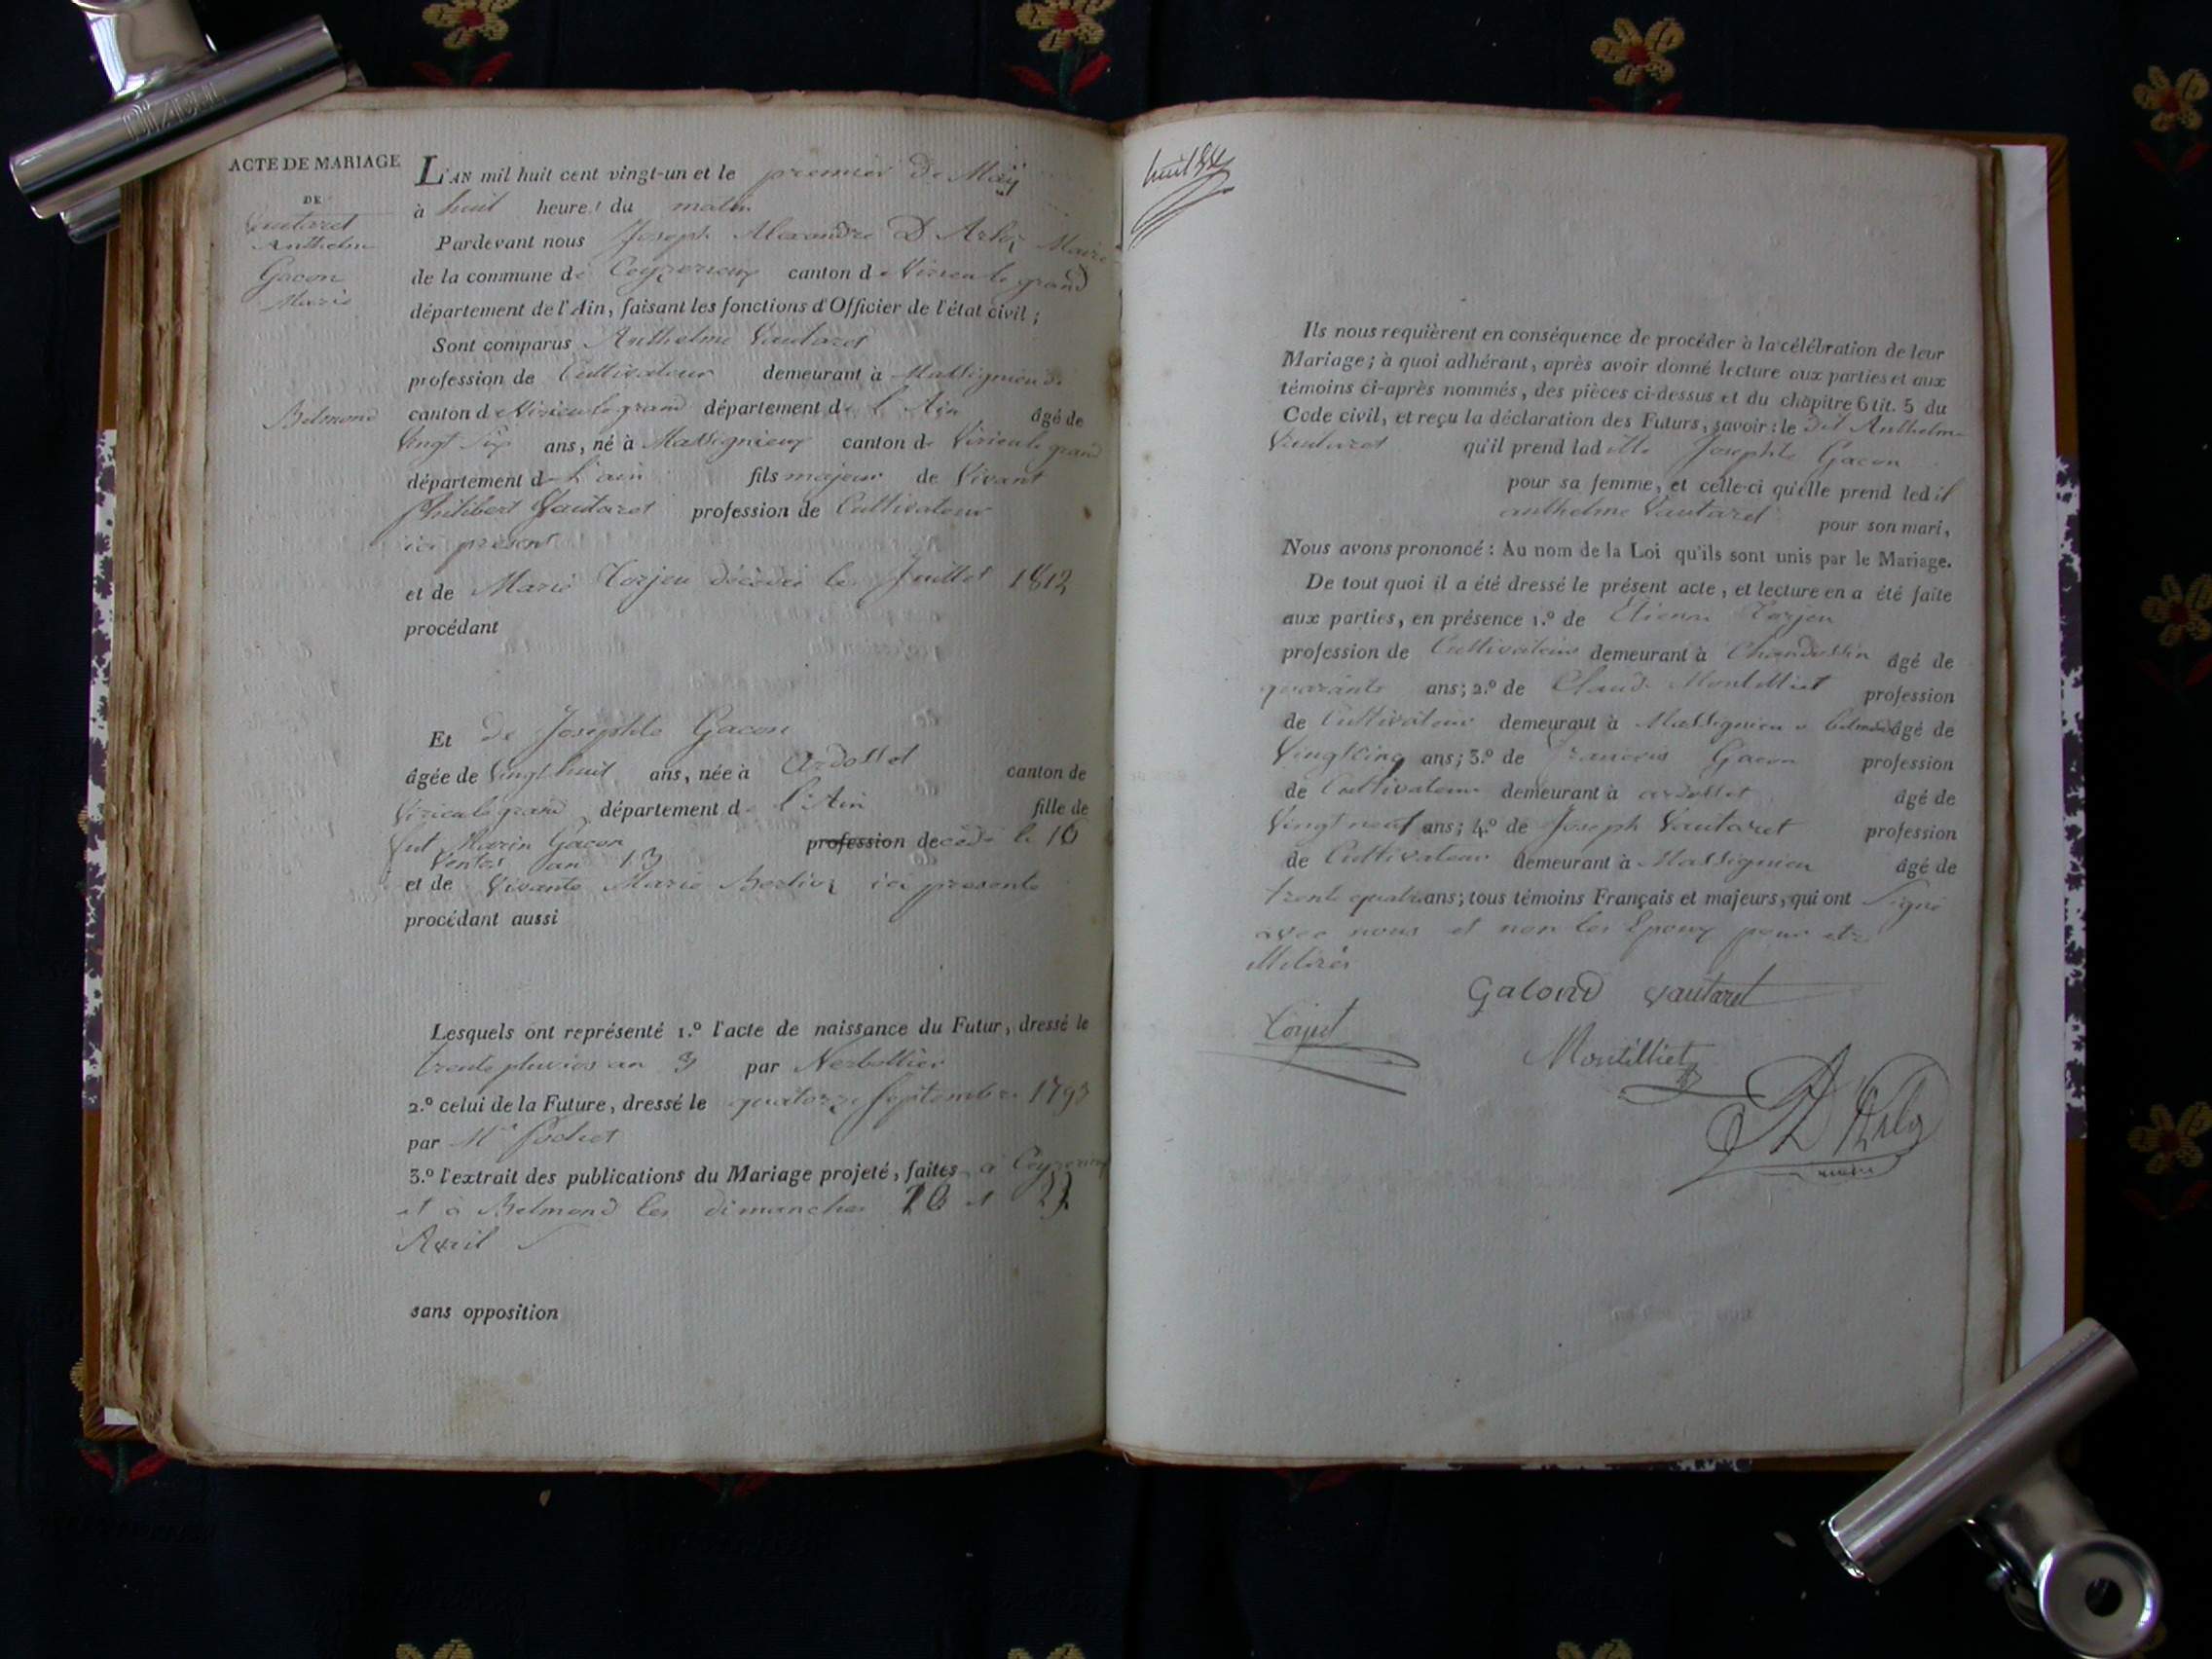 ACTE DE MARIAGE
DE
Vautaret
Anthelme
Gacon
Marie
Belmond
L'AN mil huit cent vingt-un et le premier de Maÿ
à huit heures du matin
Pardevant nous Joseph Alexandre D Arloz Maire
de la commune de Ceyzerieux canton de Virieu le grand
département de l'Ain, faisant les fonctions d'Officier de l'état civil;
Sont comparus Anthelme Vautaret
profession de Cultivateur demeurant à Massignieu de
canton de Virieu le grand département de L'Ain âgé de
Vingt Six ans, né à Massignieux canton de Virieu le grand
département de L'ain fils majeur de Vivant
Philibert Vautaret profession de Cultivateur
ici présent
et de Marie Torjeu décédée le Juillet 1812
procédant
Et de Josephte Gacon
âgée de Vingt huit ans, née à Ardosset canton de
Virieu le grand département de L'Ain fille de
fut Marin Gacon profession decédé le 10
Ventos an 13
et de Vivante Marie Berlioz ici presente
procédant aussi
Lesquels ont représenté 1.º l'acte de naissance du Futur, dressé le
trente pluvios an 3 par
2.º celui de la Future, dressé le quatorze Septembre 1793
par Mr Sochet
3.º l'extrait des publications du Mariage projeté, faites à Ceyzerieux
et à Belmond les dimanches et
Avril
sans opposition
huit
Ils nous requièrent en conséquence de procéder à la célébration de leur
Mariage; à quoi adhérant, après avoir donné lecture aux parties et aux
témoins ci-après nommés, des pièces ci-dessus et du chapitre 6 tit. 5 du
Code civil, et reçu la déclaration des Futurs, savoir: le dit Anthelme
Vautaret qu'il prend ladite Josephte Gacon
pour sa femme, et celle-ci qu'elle prend ledit
anthelme Vautaret pour son mari,
Nous avons prononcé: Au nom de la Loi qu'ils sont unis par le Mariage.
De tout quoi il a été dressé le présent acte, et lecture en a été faite
aux parties, en présence 1.º de Etienne Torjeu
profession de Cultivateur demeurant à Chandossin âgé de
quarante ans; 2.º de Claude Montilliet profession
de Cultivateur demeurant à Massignieu a Belmond âgé de
Vingt cinq ans; 3.º de Francois Gacon profession
de Cultivateur demeurant à ardosset âgé de
Vingt neuf ans; 4.º de Joseph Vautaret profession
de Cultivateur demeurant à Massignieu âgé de
trente quatre ans; tous témoins Français et majeurs, qui ont Signé
avec nous et non les Epoux pour etre
illitirés
Galond Vautaret
Torjut
Montilliet
D Arloz
maire